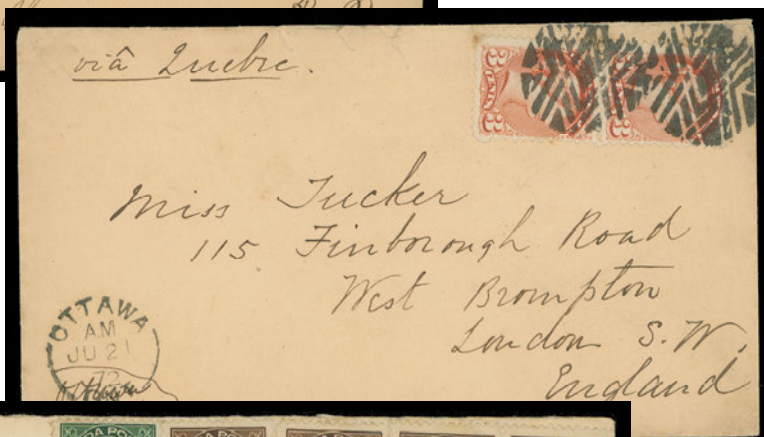 viâ Quebec.
3 3
Miss Tucker
115 Finborough Road
West Brompton
London S.W.
England
OTTAWA
AM
JU 21
72